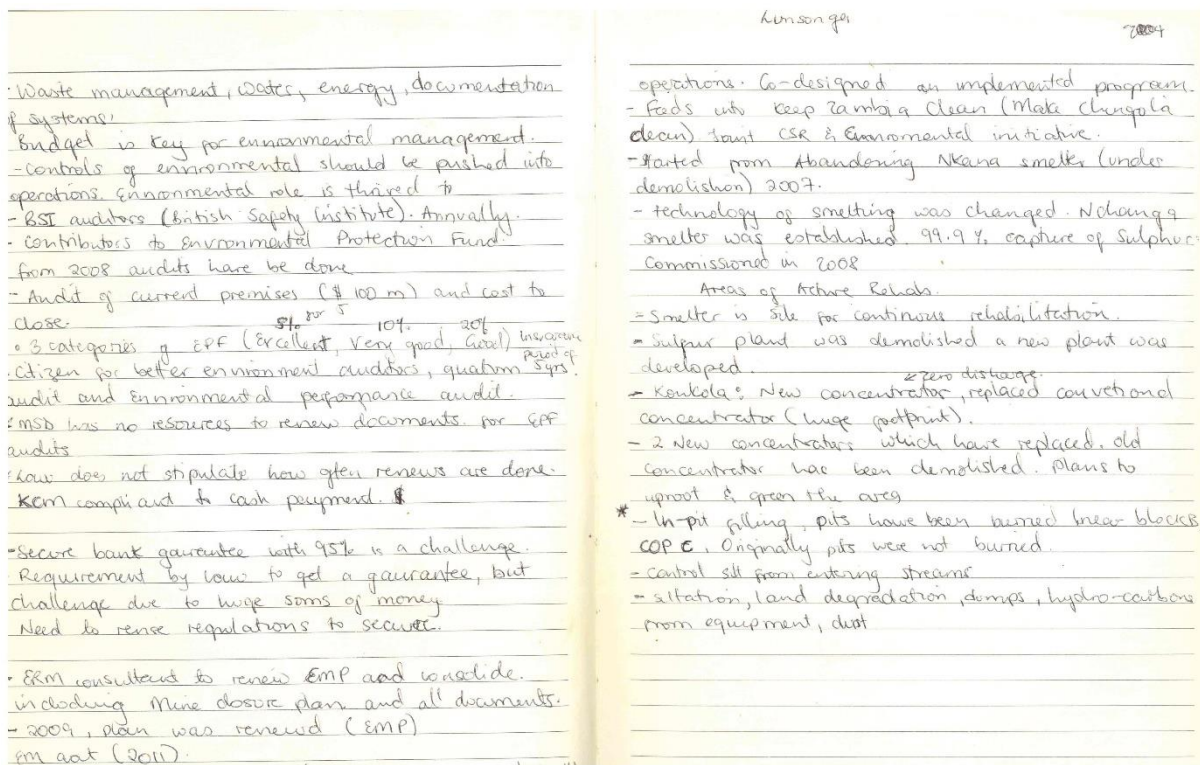 - Waste management, water, energy, documentation
of systems.
Budget is key for environmental management.
- Controls of environmental should be pushed into
operations. Environmental role is
- BSI auditors (British Safety Institute). Annually.
- Contributors to Environmental Protection Fund.
from 2008 audits have be done
- Audit of current premises ($ 100 m) and cost to
close.
5% for 5 10% 20%
• 3 categories of EPF (Excellent, Very good, Good)
period of
5yrs.
- Citizen for better environment auditors,
audit and Environmental performance audit.
- MSD has no resources to renew documents for EPF
audits
- Law does not stipulate how often renews are done.
KCM compliand to cash payment.
- Secure bank gaurentee with 95% is a challenge.
Requirement by law to get a gaurantee, but
challenge due to huge soms of money
Need to revise regulations to secure.
- ERM consultant to renew EMP and consolide.
including Mine closure plan and all documents.
- 2009, plan was renewd (EMP)
(2011).
2004
operations. Co-designed an implemented program.
- Feeds into Keep Zambia Clean (Make Chingola
clean) Joint CSR & Environmental initiative.
- Started from Abandoning Nkana smelter (under
demolishon) 2007.
- technology of smelting was changed. Nchanga
smelter was established. 99.9% capture of Sulphur
Commissioned in 2008
Areas of Active Rehab.
- Smelter is site for continuous rehabilitation.
- Sulpur plant was demolished a new plant was
developed.
& Zero discharge
- Konkola: New concentrator, replace convetiond
concentrator (huge footprint).
- 2 New concentrators which have replaced. old
concentrator has been demolished. Plans to
uproot & green the area
* - In-pit filling, pits have been burried (near block
COP C. Originally pits were not burried.
- Control silt from entering streams
- siltation, land degradation, dumps, hydro-carbons
from equipment, dust